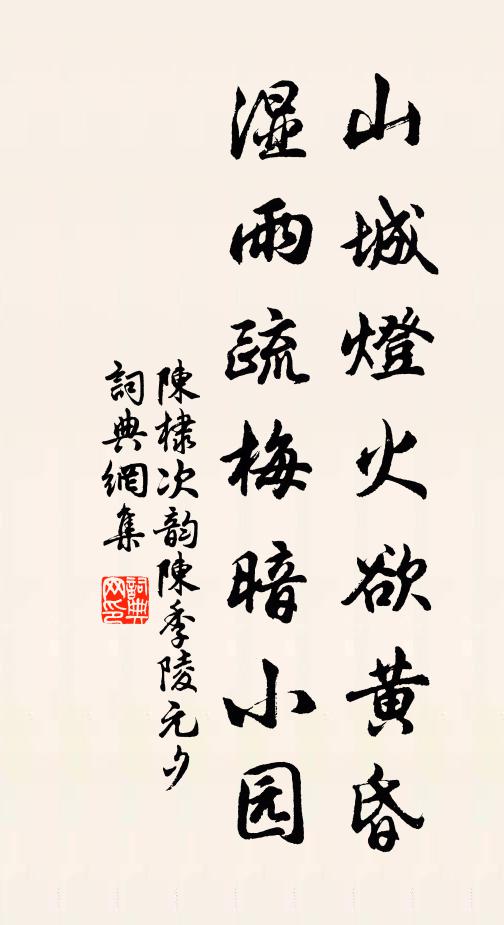 山城燈火欲黄昏
湿雨疏梅暗小园
陳棣次韵陳季陵元夕
詞典網集
詞典网印